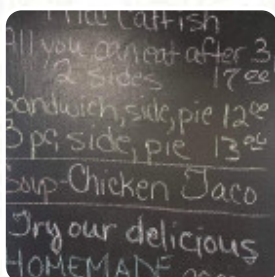 Catfish
All you can eat after 3
2 sides 17⁰⁰
Sandwich, side, pie 12⁰⁰
3 pc, side, pie 13⁰⁰
Soup-Chicken Taco
Try our delicious
HOMEMADE